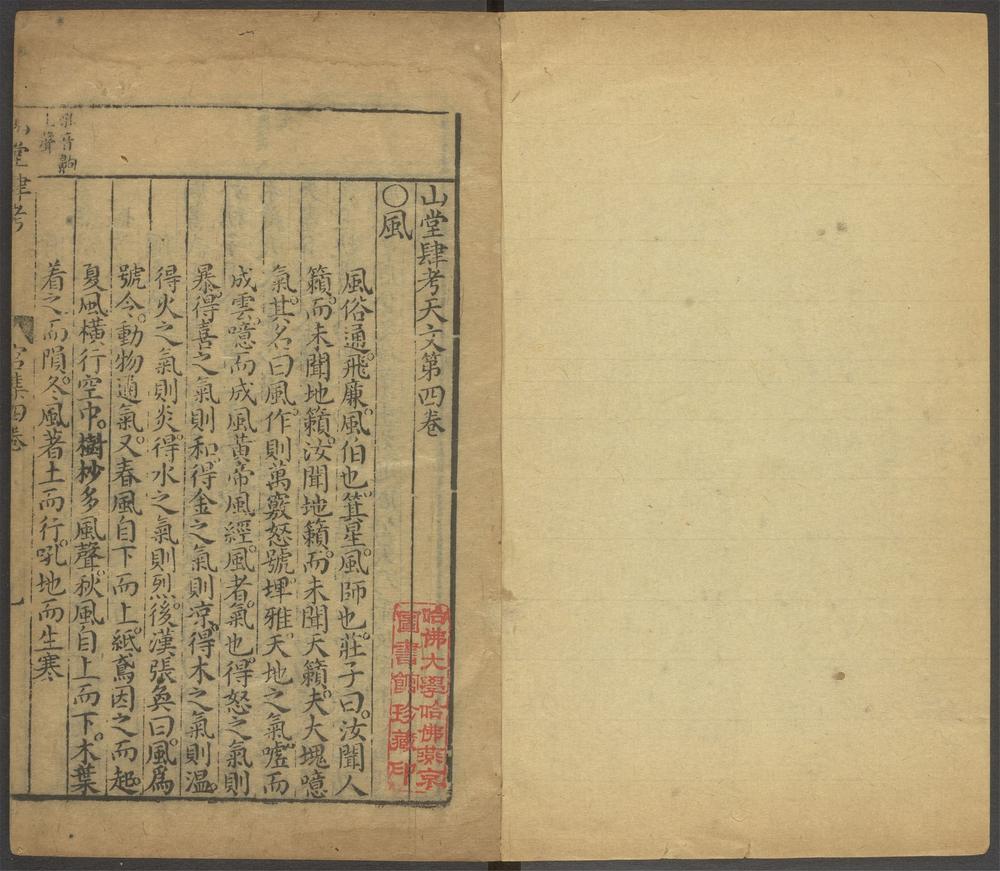 山堂肆考天文第四卷
○風
風俗通飛廉風伯也箕星風師也莊子曰汝聞人
籟而未聞地籟汝聞地籟而未聞天籟夫大塊噫
氣其名曰風作則萬竅怒號埤雅天地之氣噓而
成雲噫而成風黃帝風經風者氣也得怒之氣則
暴得喜之氣則和得金之氣則凉得木之氣則温
得火之氣則炎得水之氣則烈後漢張奐曰風爲
號令動物通氣又春風自下而上紙鳶因之而起
夏風橫行空中樹杪多風聲秋風自上而下木葉
着之而隕冬風著土而行吼地而生寒
音
聲
山堂肆考
宮集四卷
哈佛大學哈佛燕京
圖書館珍藏印